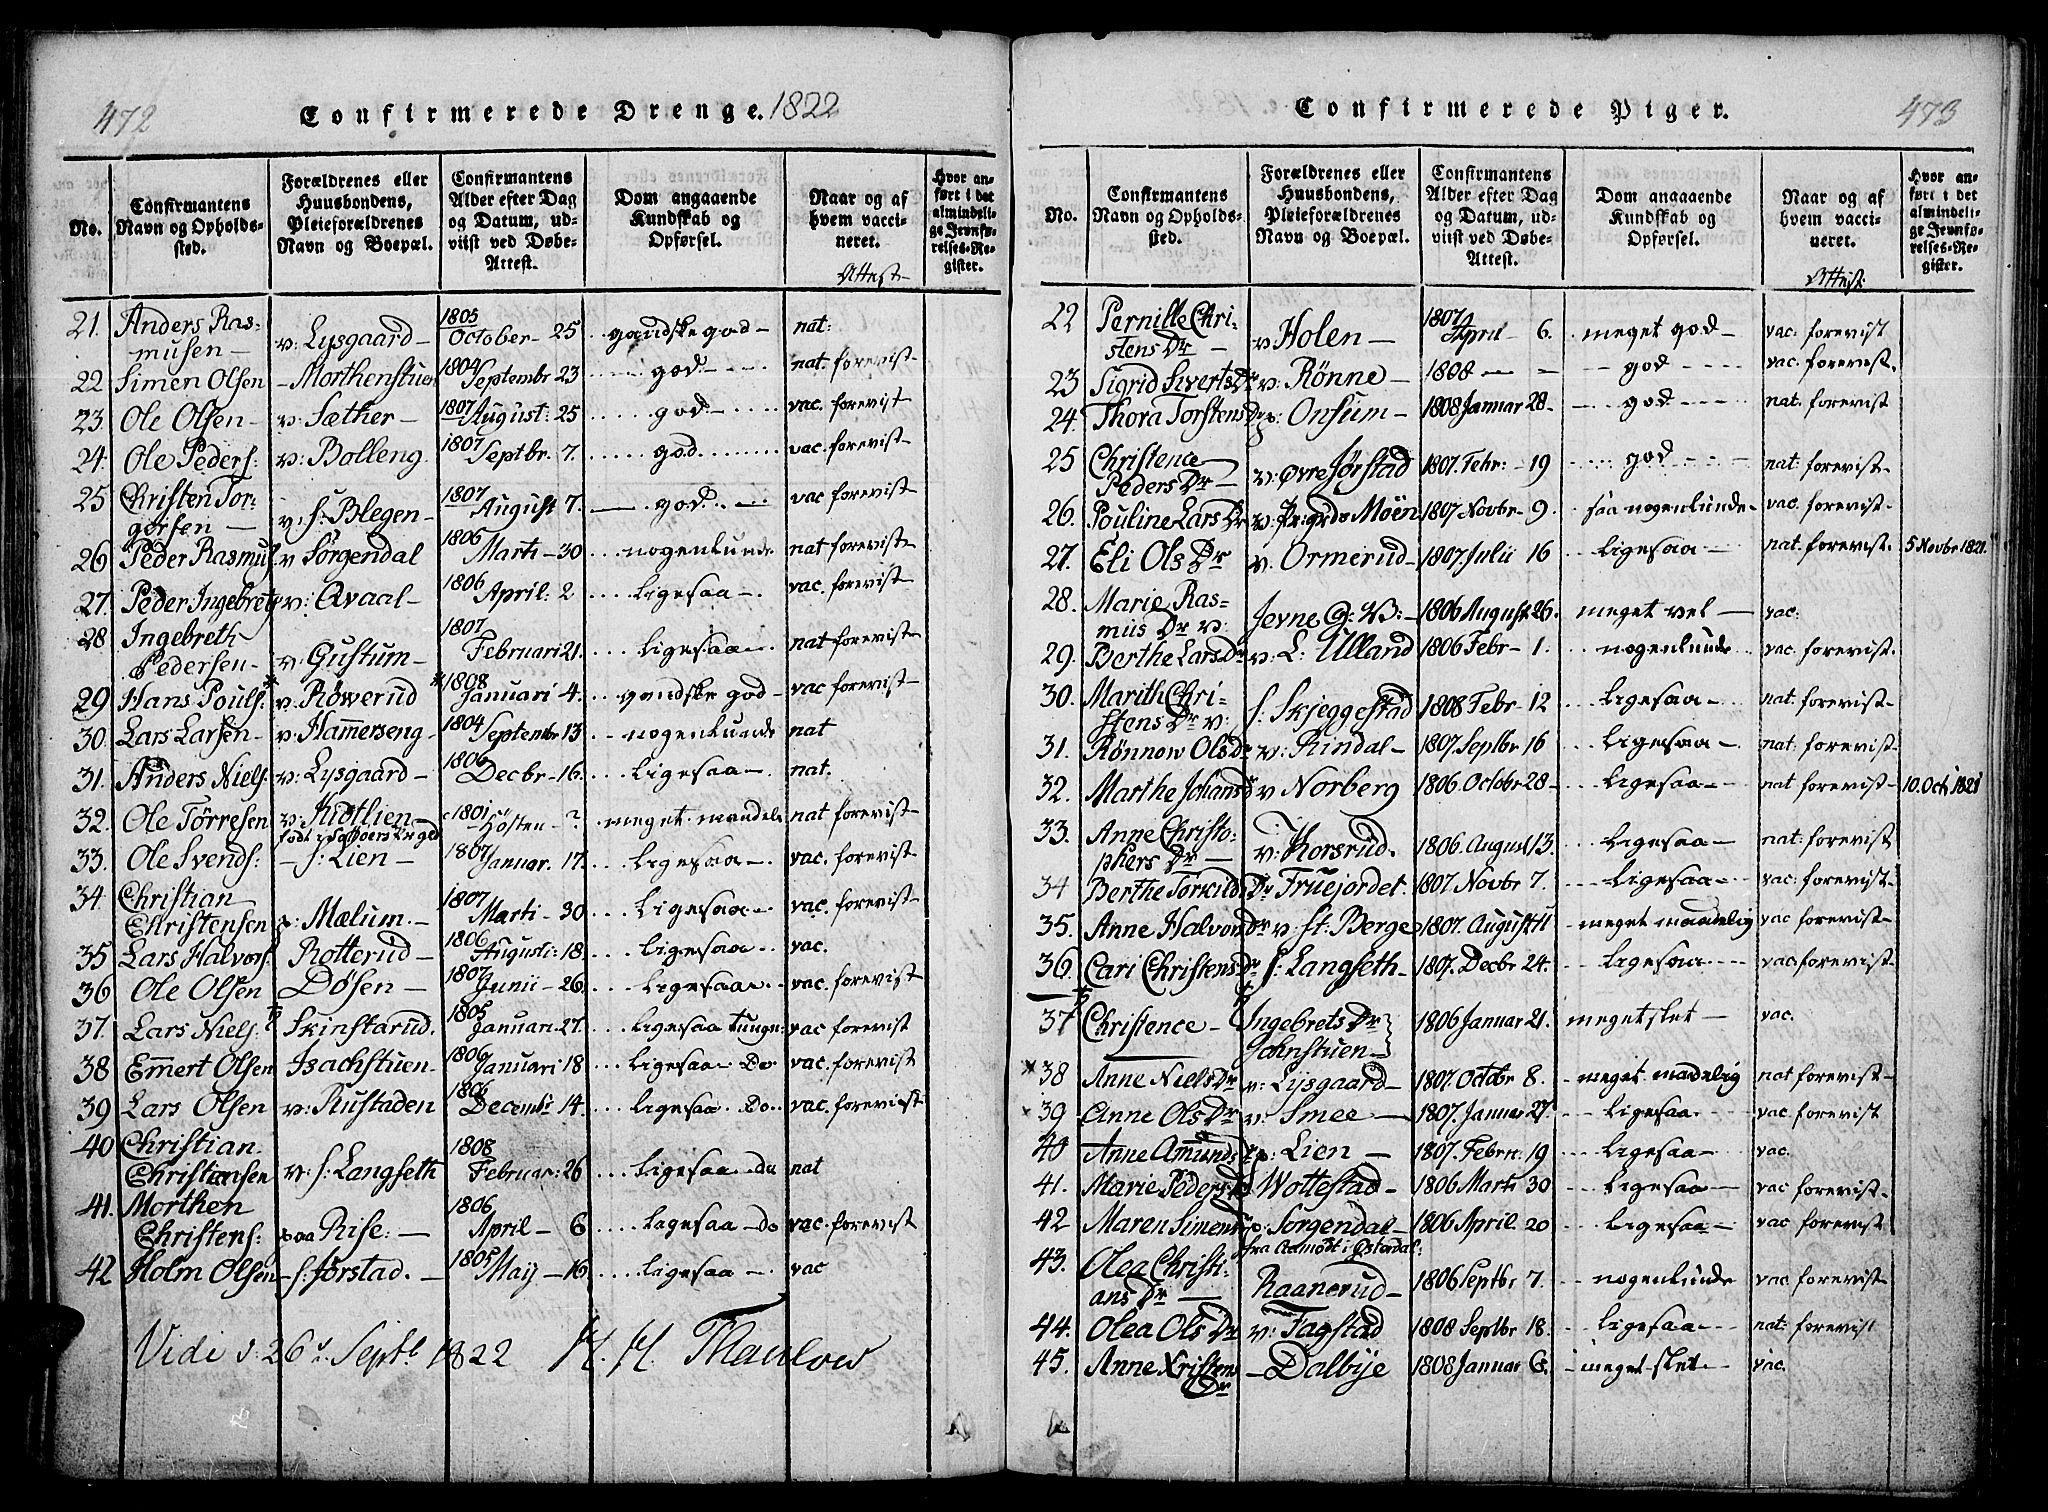 472
Confirmerede Drenge. 1822
No.
Confirmantens Navn og Opholdssted.
Forældrenes eller Huusbondens, Pleieforældrenes Navn og Boepæl.
Confirmantens Alder efter Dag og Datum, udviist ved Døbe-Attest.
Dom angaaende Kundskab og Opførsel.
Naar og af hvem vaccineret.
Attest
Hvor anført i det almindelige Jevnførelses-Register.
21. Anders Rasmusen v: Lysgaard 1805 October 25 gandske god nat:
22 Simen Olsen Morthenstuen 1804 Septembr 23 god nat: forevist
23. Ole Olsen v: Sæther 1807 August: 25 god vac. forevist
24. Ole Peders: v: Bolleng 1807 Septbr. 7. god vac. forevist
25 Christen Torgersen v: s: Blegen 1807 August 7. god vac forevist
26 Peder Rasmus: v Sørgendal 1806 Marti 30 nogenlunde nat forevist
27. Peder Ingebrets v: Qvaal 1806 April: 2 ligesaa vac. forevist
28 Ingebreth Pedersen v: Gustum 1807 Februari 21. ligesaa nat forevist
29 Hans Pouls: v: Røwerud 1808 Januari 4. gandske god vac forevist
30. Lars Larsen v: Hammerseng 1804 Septembr 13 nogenlunde nat
31. Anders Niels. v: Lysgaard 1806 Decbr 16. ligesaa nat.
32. Ole Tørresen v: Kiøtlien 1801 Høsten ? meget maadel nat forevist
33. Ole Svends: s: Lien 1807 Januar. 17. ligesaa vac. forevist
34. Christian Christensen p: Mælum. 1807 Marti 30 ligesaa vac. forevist
35 Lars Halvors. Rotterud 1806 Augusti: 18. ligesaa vac.
36 Ole Olsen Døsen 1807 Junii 26. ligesaa vac. forevist
37. Lars Niels: Skinstarud. 1805 Januari 27. ligesaa tunge: vac forevist
38 Emmert Olsen Isachstuen 1806 Januari 18 ligesaa Do vac. forevist
39 Lars Olsen v: Rustaden 1806 Decembr 14. ligesaa Do. vac. forevist
40 Christian Christiansen v: s: Langseth 1808 Februar: 26 ligesaa do nat
41. Morthen Christens: paa Rise: 1806 April 6 ligesaa do vac. forevist
42 Holm Olsen s: Jørstad. 1805 Maij 16. ligesaa vac
Vidi d: 26d. Septbr 1822 H. H. Thaulow
473
Confirmerede Piger.
No.
Confirmantens Navn og Opholdssted.
Forældrenes eller Huusbondens, Pleieforældrenes Navn og Boepæl.
Confirmantens Alder efter Dag og Datum, udviist ved Døbe-Attest.
Dom angaaende Kundskab og Opførsel.
Naar og af hvem vaccineret.
Attest:
Hvor anført i det almindelige Jevnførelses-Register.
22 Pernille ChristensDr v Holen 1807 April 6. meget god vac: forevist
23 Sigrid SivertsDr v: Rönne 1808 god vac. forevist.
24. Thora TorstensDr p: Onsum 1808 Januar 28 god nat. forevist
25 Christence PedersDr v: Øvre Jørstad 1807. Febr: 19 god nat: forevist
26. Pouline LarsDr v: Pr:grds Moen 1807 Novbr 9. saa nogenlunde vac. forevist
27. Eli OlsDr v: Ormerud 1807. Julii 16 ligesaa nat. forevist. 5 Novbr 1821.
28. Marie RasmusDr v: Jevne G: V: 1806 August 26. meget vel vac:
29. Berthe LarsDr v: L: Ulland 1806 Febr 1. nogenlunde vac. forevist.
30. Marith ChristensDr v: s. Skjeggestad 1808 Febr 12 ligesaa nat. forevist
31. Rønnow OlsDr v: Rindal 1807. Septbr 16 ligesaa nat: forevist
32. Marthe JohansDr v Norberg 1806. Octobr 28 ligesaa nat forevist 10. Oct. 1821
33. Anne ChristophersDr v: Korsrud. 1806. August 13. ligesaa nat: forevist
34 Berthe TorkildsDr Fruejordet. 1807. Novbr 7. ligesaa vac: forevist
35. Anne HalvorsDr v: st: Berge 1807. August 11 meget maadelig vac forevist
36. Cari ChristensDr s: Langseth 1807. Decbr 24. ligesaa vac forevist
37 Christence IngebretsDr Johnstuen 1806 Januar 21. meget slet vac.
38 Anne NielsDr v: Lysgaard 1807. Octobr 8. meget madelig nat forevist
39. Anne OlsDr v: Smee 1807. Januar 27. ligesaa vac. forevist
40 Anne AmundsDr p: Lien 1807. Februr. 19 ligesaa vac.
41. Marie PedersD Wottestad 1806 Marti 30 ligesaa vac forevist
42 Maren Simens p: Sørgendal 1806 April. 20 ligesaa vac forevist
fra Aamodt i Østerdal:
43. Olea ChristiansDr Raanerud 1806 Septbr 7. nogenlunde vac. forevist
44. Olea OlsDr v: Fagstad 1808 Septbr 18. ligesaa nat: forevist
45. Anne KristensDr Dalbye 1808 Januar 6. meget slet vac.